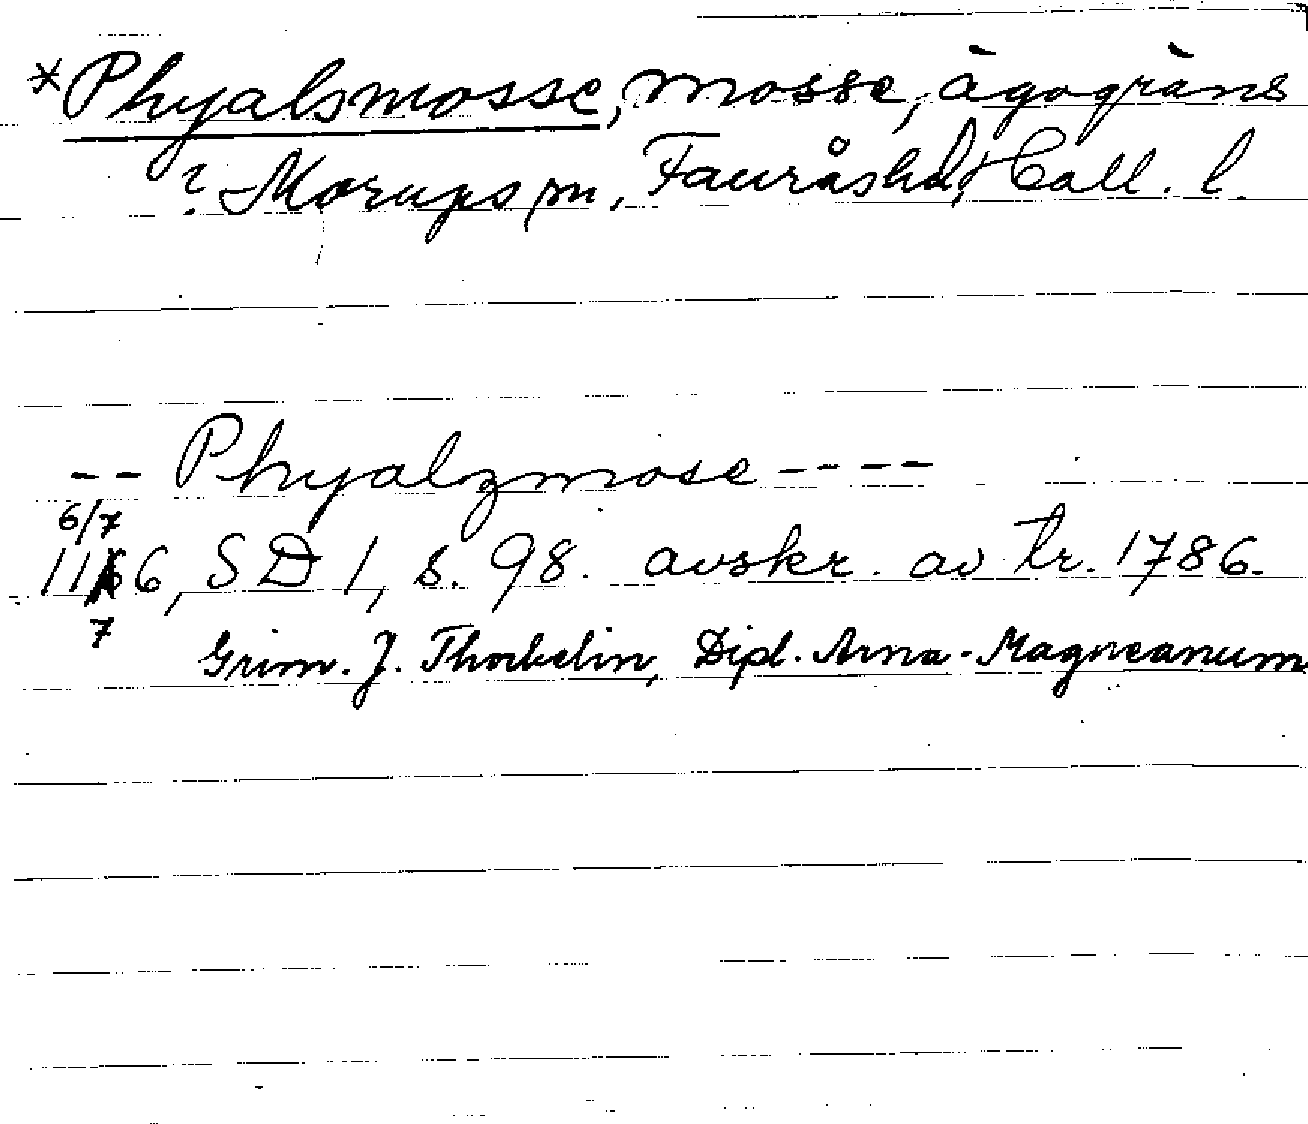 *Phyalsmosse, mosse, ägogräns
? Morups sn, Fauråshd, Hall. l.
-- Phyalzmose ----
6/7
1166, SD 1, s. 98. avskr. av tr. 1786.
7
Grim. J. Thorkelin, Dipl. Arna-Magneanum